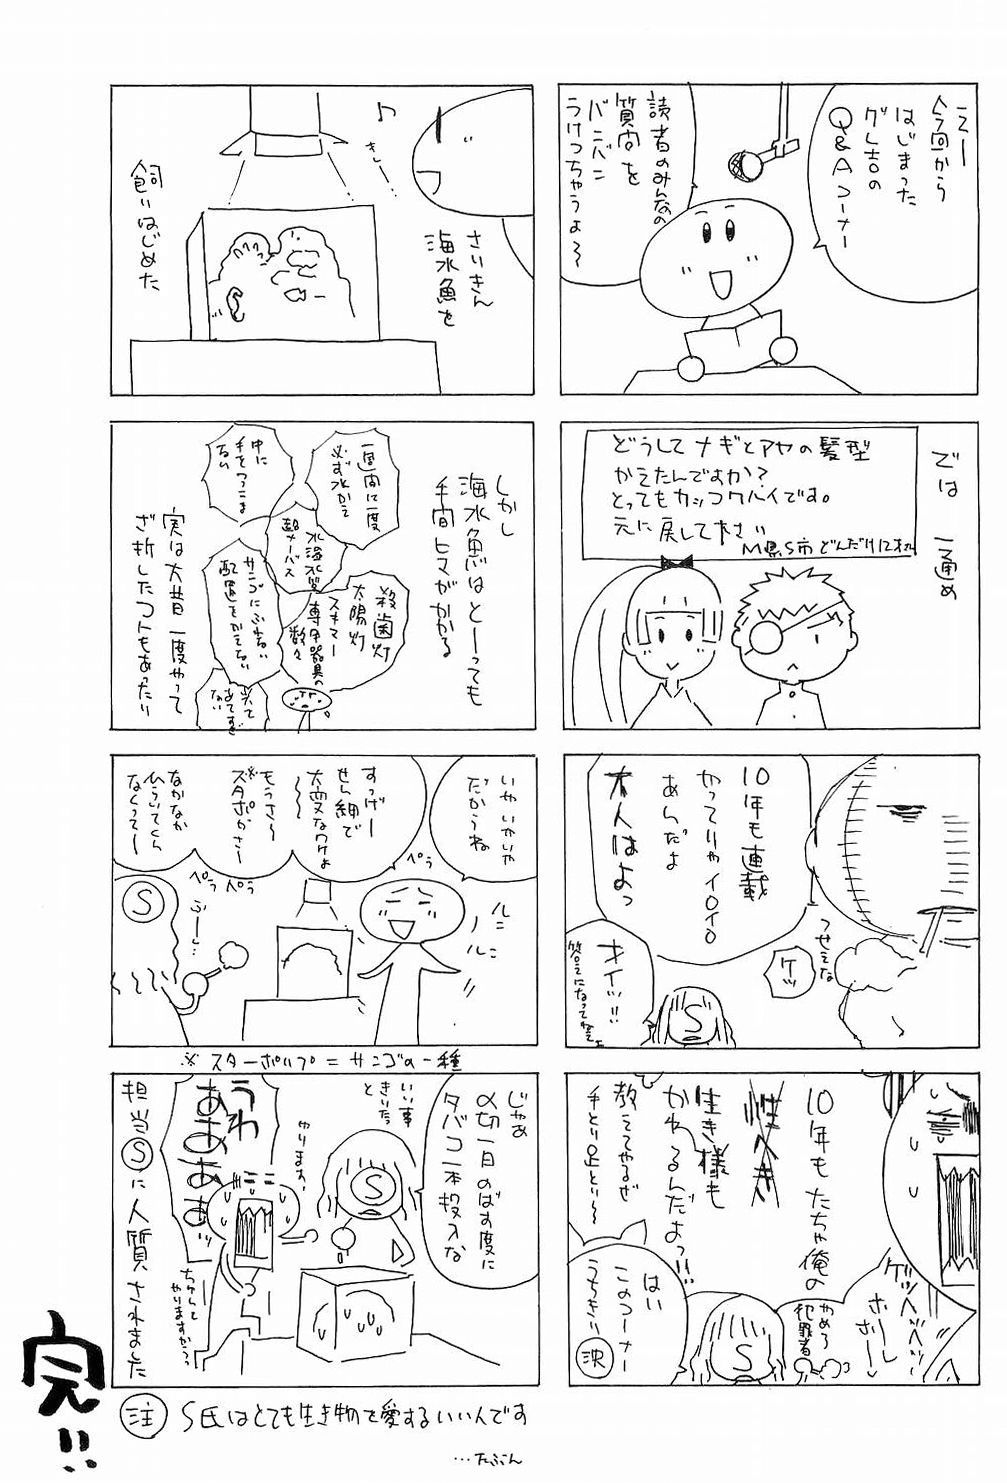 えー
今回から
はじまった
グレ吉の
Q&Aコーナー
読者のみんなの
質問を
バンバン
うけつちゃうよ〜
では 一通め
どうして ナギとアヤの髪型
かえたんですか?
とってもカッコワルイです。
元に戻して下さい
M県S市 どんだけ
10年も連載
やってりゃイロイロ
あんだよ
大人はよっ
うっせえな
ケッ
オイッ!!
答えになってねえ
S
10年もたちゃ俺の
生き様も
かわるんだよっ!!
教えてやるぜ
手とり足とり〜
ゲッヘッヘッヘッ
ホレ
ホレ〜
やめろ
犯罪者
S
はい
このコーナー
うちきりぃ
決
さいきん
海水魚を
飼いはじめた
♪
きしー
しかし
海水魚はとーっても
手間ヒマがかかる
一週間に一度
必ず水かえて
中に
手をつっこま
ない
水温水質
殺歯灯
太陽灯
スキマー
専用器具の
数々
サンゴにふれない
配置をかえない
実は大昔一度やって
ざ折したコトもあったり
いやいやいや
だからね
すっげー
せん細で
大変なワケよ
〜〜
もうさ〜
※スタポがさ〜
なかなか
ひらいてくん
なくって〜
ぺらぺらぺら
ルン
ルン
S
ぶー…
※ スターポリプ=サンゴの一種
じゃあ
〆切一日のばす度に
タバコ一本投入な
いい事
きいたっ
と
S
やります!
うわ
あああぁ
ああぁッ
ちゃんと
やりますからっ
担当Sに人質されました
注 S氏はとても生き物を愛するいい人です
…たぶん
完!!